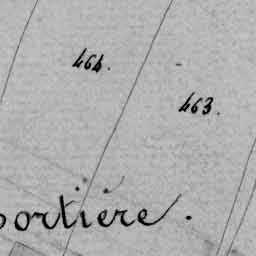 464.
463.
portière.